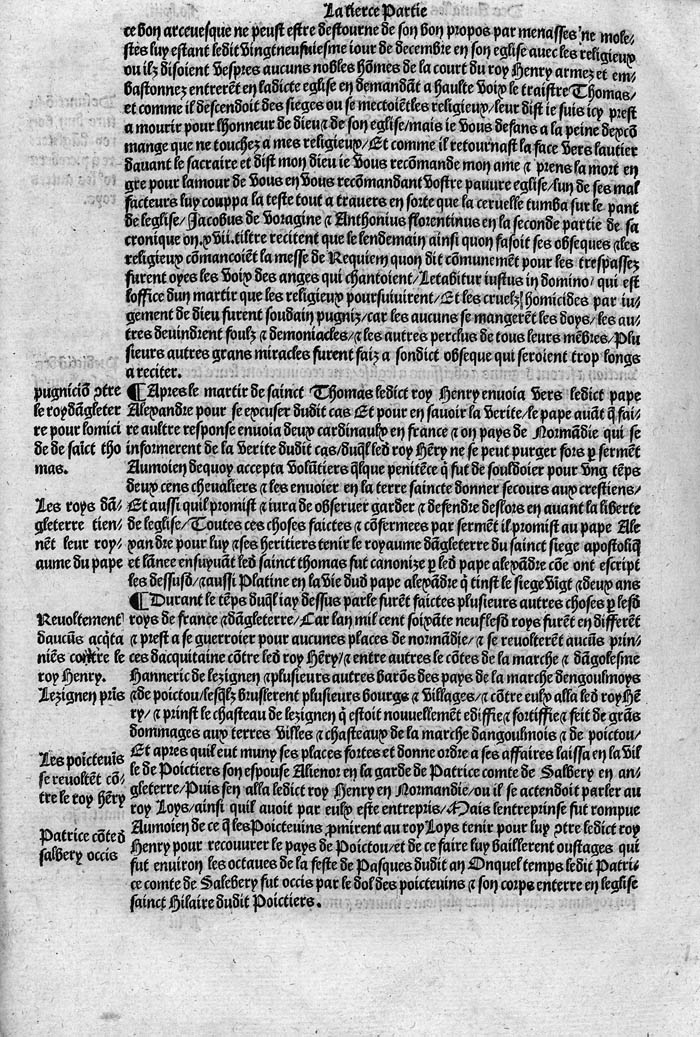 La tierce Partie
ce bon arcevesque ne peust estre destourne de son bon propos par menasses ne mole⸗
stes luy estant ledit vingtneufuiesme iour de decembre en son eglise avec les religieux
ou ilz disoient vespres aucuns nobles hōmes de la court du roy Henry armez et em⸗
bastonnez entrerēt en ladicte eglise en demandāt a haulte voix le traistre Thomas/
et comme il descendoit des sieges ou se mectoiētles religieux/leur dist ie suis icy prest
a mourir pour lhonneur de dieu ⁊ de son eglise/mais ie vous defans a la peine dexcō
mange que ne touchez a mes religieux/Et comme il retournast la face vers lautier
davant le sacraire et dist mon dieu ie vous recōmande mon ame ⁊ prens la mort en
gre pour lamour de vous en vous recōmandant vostre pauure eglise/lun de ses mal
facteurs luy couppa la teste tout a travers en sorte que la ceruelle tumba sur le pant
de leglise/ Jacobus de Voragine ⁊ Anthonius florentinus en la seconde partie de sa
cronique on.xvii.tiltre recitent que le lendemain ainsi quon fasoit ses obseques ⁊les
religieux cōmancoiēt la messe de Requiem quon dit cōmunemēt pour les trespassez
furent oyes les voix des anges qui chantoient/Letabitur iustus in domino/ qui est
loffice dun martir que les religieux poursuiuirent/Et les cruelz homicides par iu⸗
gement de dieu furent soudain pugniz/car les aucuns se mangerēt les doys/les au⸗
tres devindrent foulz ⁊ demoniacles/⁊ les autres perclus de tous leurs mēbres/Plu
sieurs autres grans miracles furent faiz a sondict obseque qui seroient trop longs
a reciter.
pugniciō ↄtre
le roydāgleter
re pour lomici
de de saīct tho
mas.
¶Apres le martir de sainct Thomas ledict roy Henry envoia vers ledict pape
Alexandre pour se excuser dudit cas Et pour en savoir la verite/le pape avāt q̄ fai⸗
re aultre response envoia deux cardinaulx en france ⁊ on pays de Normādie qui se
informerent de la verite dudit cas/duq̄l led̄ roy Hēry ne se peut purger fors p̱ sermēt
Aumoien dequoy accepta volūtiers q̄lque penitēce q̄ fut de souldoier pour vng tēps
deux cens chevaliers ⁊ les envoier en la terre saincte donner secours aux crestiens/
Les roys dā⸗
gleterre tien⸗
nēt leur roy⸗
aume du pape
Et aussi quil promist ⁊ iura de observer garder ⁊ defendre deslors en avant la liberte
de leglise/Toutes ces choses faictes ⁊ cōfermees par sermēt il promist au pape Ale
xandre pour luy ⁊ses heritiers tenir le royaume dāgleterre du sainct siege apostoliq̄
et lānee ensuyuāt led̄ sainct thomas fut canonize p̱ led̄ pape alexādre cōe ont escript
les dessusd̄/⁊aussi Platine en la vie dud̄ pape alexādre q̄ tinst le siege vīgt ⁊deux ans
¶Durant le tēps duq̄l iay dessus parle furēt faictes plusieurs autres choses p̱ lesd̄
Revoltement
daucūs acq̄ta
niēs contre le
roy Henry.
Lezignen prīs
roys de france ⁊dāgleterre/ Car lan mil cent soixāte neuflesd̄ roys furēt en differēt
⁊ prest a se guerroier pour aucunes places de normādie/ ⁊ se revolterēt aucūs prin⸗
ces dacquitaine cōtre led̄ roy Hēry/⁊ entre autres le cōtes de la marche ⁊ dāgolesme
Hanneric de lezignen ⁊plusieurs autres barōs des pays de la marche dengoulmoys
⁊de poictou/lesq̄lz brusslerent plusieurs bourgs ⁊ villages/⁊ cōtre eulx alla led̄ roy Hē
ry/ ⁊ prinst le chasteau de lezignen q̄ estoit nouvellemēt ediffie⁊ fortiffie ⁊ feit de grās
dommages aux terres villes ⁊ chasteaux de la marche dangoulmois ⁊ de poictou/
Les poictevīs
se revoltēt cō⸗
tre le roy hēry
Et apres quil eut muny ses places fortes et donne ordre a ses affaires laissa en la vil
le de Poictiers son espouse Alienor en la garde de Patrice comte de Salbery en an⸗
gleterre/Puis sen alla ledict roy Henry en Normandie/ou il se actendoit parler au
roy Loys/ainsi quil avoit par eulx este entrepris/Mais lentreprinse fut rompue
Patrice cōte d̄
salbery occis
Aumoien de ce q̄ les Poictevins ꝓmirent au roy Loys tenir pour luy ↄtre ledict roy
Henry pour recouvrer le pays de Poictou/et de ce faire luy baillerent oustages qui
fut environ les octaves de la feste de Pasques dudit an Onquel temps ledit Patri⸗
ce comte de Salebery fut occis par le dol des poictevins ⁊ son corps enterre en leglise
sainct Hilaire dudit Poictiers.